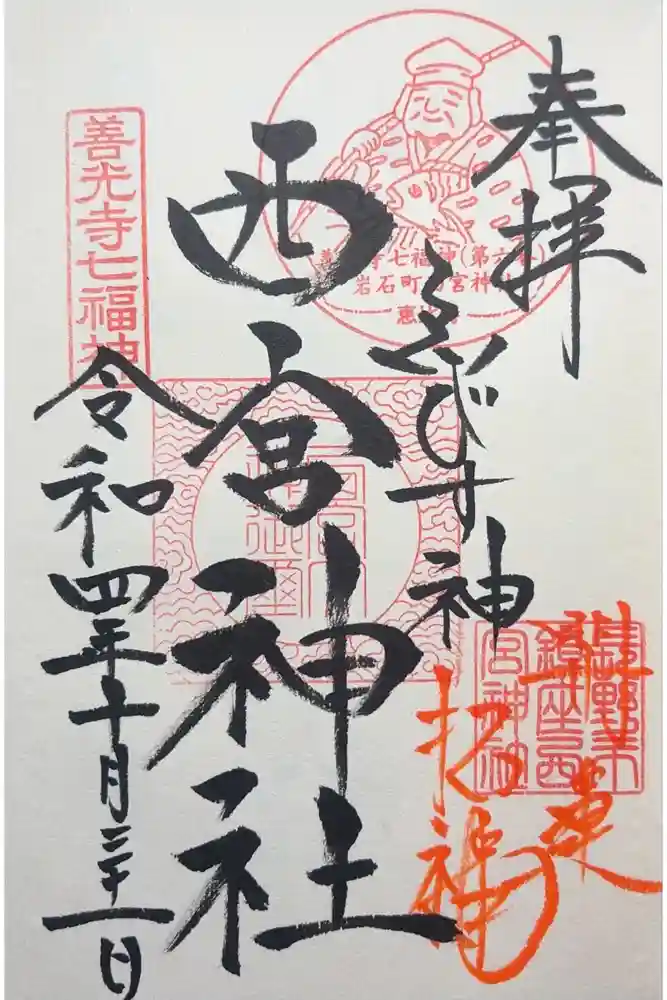 奉拝
善光寺七福神(第六番)
岩石町西宮神社
ゑびす神
長野市
鎮座西
宮神社
招福
西宮神社
善光寺七福神
令和四年十月三十一日